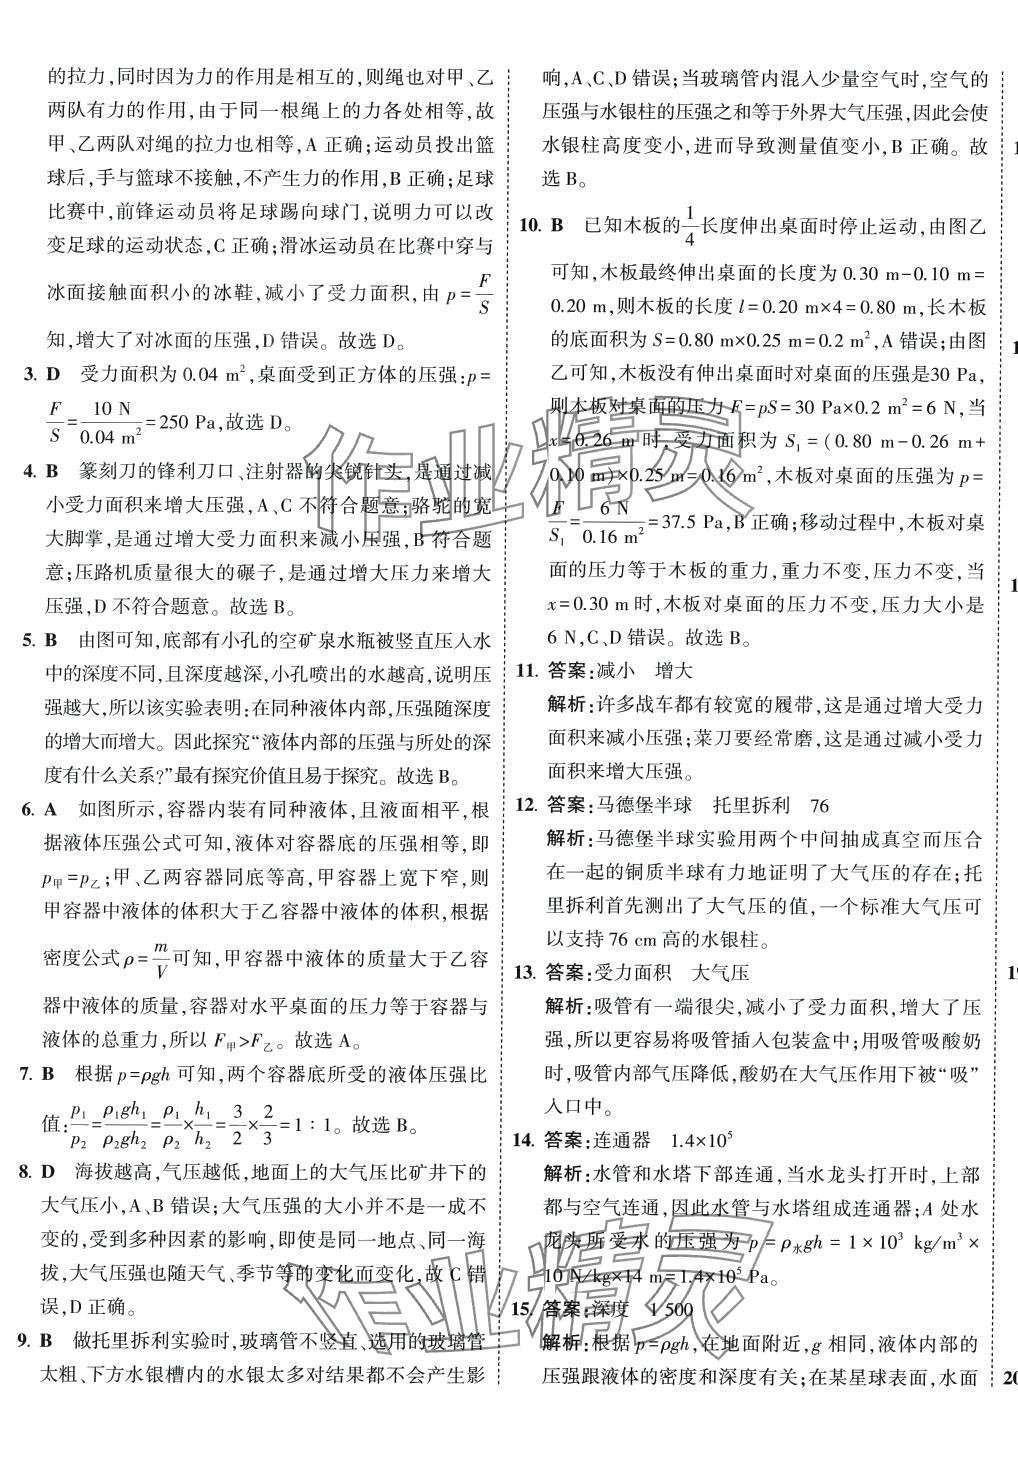 的拉力,同时因为力的作用是相互的,则绳也对甲、乙
两队有力的作用,由于同一根绳上的力各处相等,故
甲、乙两队对绳的拉力也相等,A 正确;运动员投出篮
球后,手与篮球不接触,不产生力的作用,B 正确;足球
比赛中,前锋运动员将足球踢向球门,说明力可以改
变足球的运动状态,C 正确;滑冰运动员在比赛中穿与
冰面接触面积小的冰鞋,减小了受力面积,由 p=F/S
知,增大了对冰面的压强,D 错误。故选 D。
3. D 受力面积为 0.04 m²,桌面受到正方体的压强:p=
F/S=10 N/0.04 m²=250 Pa,故选 D。
4. B 篆刻刀的锋利刀口、注射器的尖锐针头,是通过减
小受力面积来增大压强,A、C 不符合题意;骆驼的宽
大脚掌,是通过增大受力面积来减小压强,B 符合题
意;压路机质量很大的碾子,是通过增大压力来增大
压强,D 不符合题意。故选 B。
5. B 由图可知,底部有小孔的空矿泉水瓶被竖直压入水
中的深度不同,且深度越深,小孔喷出的水越高,说明压
强越大,所以该实验表明:在同种液体内部,压强随深度
的增大而增大。因此探究“液体内部的压强与所处的深
度有什么关系?”最有探究价值且易于探究。故选 B。
6. A 如图所示,容器内装有同种液体,且液面相平,根
据液体压强公式可知,液体对容器底的压强相等,即
p甲=p乙;甲、乙两容器同底等高,甲容器上宽下窄,则
甲容器中液体的体积大于乙容器中液体的体积,根据
密度公式 ρ=m/V可知,甲容器中液体的质量大于乙容
器中液体的质量,容器对水平桌面的压力等于容器与
液体的总重力,所以 F甲>F乙。故选 A。
7. B 根据 p=ρgh 可知,两个容器底所受的液体压强比
值:p₁/p₂=ρ₁gh₁/ρ₂gh₂=ρ₁/ρ₂×h₁/h₂=3/2×2/3=1∶1。故选 B。
8. D 海拔越高,气压越低,地面上的大气压比矿井下的
大气压小,A、B 错误;大气压强的大小并不是一成不
变的,受到多种因素的影响,即使是同一地点、同一海
拔,大气压强也随天气、季节等的变化而变化,故 C 错
误,D 正确。
9. B 做托里拆利实验时,玻璃管不竖直、选用的玻璃管
太粗、下方水银槽内的水银太多对结果都不会产生影
响,A、C、D 错误;当玻璃管内混入少量空气时,空气的
压强与水银柱的压强之和等于外界大气压强,因此会使
水银柱高度变小,进而导致测量值变小,B 正确。故
选 B。
10. B 已知木板的1/4长度伸出桌面时停止运动,由图乙
可知,木板最终伸出桌面的长度为 0.30 m-0.10 m=
0.20 m,则木板的长度 l=0.20 m×4=0.80 m,长木板
的底面积为 S=0.80 m×0.25 m=0.2 m²,A 错误;由图
乙可知,木板没有伸出桌面时对桌面的压强是30 Pa,
则木板对桌面的压力 F=pS=30 Pa×0.2 m²=6 N,当
x=0.26 m 时,受力面积为 S₁=(0.80 m-0.26 m+
0.10 m)×0.25 m=0.16 m²,木板对桌面的压强为 p=
F/S₁=6 N/0.16 m²=37.5 Pa,B 正确;移动过程中,木板对桌
面的压力等于木板的重力,重力不变,压力不变,当
x=0.30 m 时,木板对桌面的压力不变,压力大小是
6 N,C、D 错误。故选 B。
11. 答案:减小 增大
解析:许多战车都有较宽的履带,这是通过增大受力
面积来减小压强;菜刀要经常磨,这是通过减小受力
面积来增大压强。
12. 答案:马德堡半球 托里拆利 76
解析:马德堡半球实验用两个中间抽成真空而压合
在一起的铜质半球有力地证明了大气压的存在;托
里拆利首先测出了大气压的值,一个标准大气压可
以支持 76 cm 高的水银柱。
13. 答案:受力面积 大气压
解析:吸管有一端很尖,减小了受力面积,增大了压
强,所以更容易将吸管插入包装盒中;用吸管吸酸奶
时,吸管内部气压降低,酸奶在大气压作用下被“吸”
入口中。
14. 答案:连通器 1.4×10⁵
解析:水管和水塔下部连通,当水龙头打开时,上部
都与空气连通,因此水管与水塔组成连通器;A 处水
龙头所受水的压强为 p=ρ水gh=1×10³ kg/m³×
10 N/kg×14 m=1.4×10⁵ Pa。
15. 答案:深度 1 500
解析:根据 p=ρgh,在地面附近,g 相同,液体内部的
压强跟液体的密度和深度有关;在某星球表面,水面
作业精灵
作业精灵
20